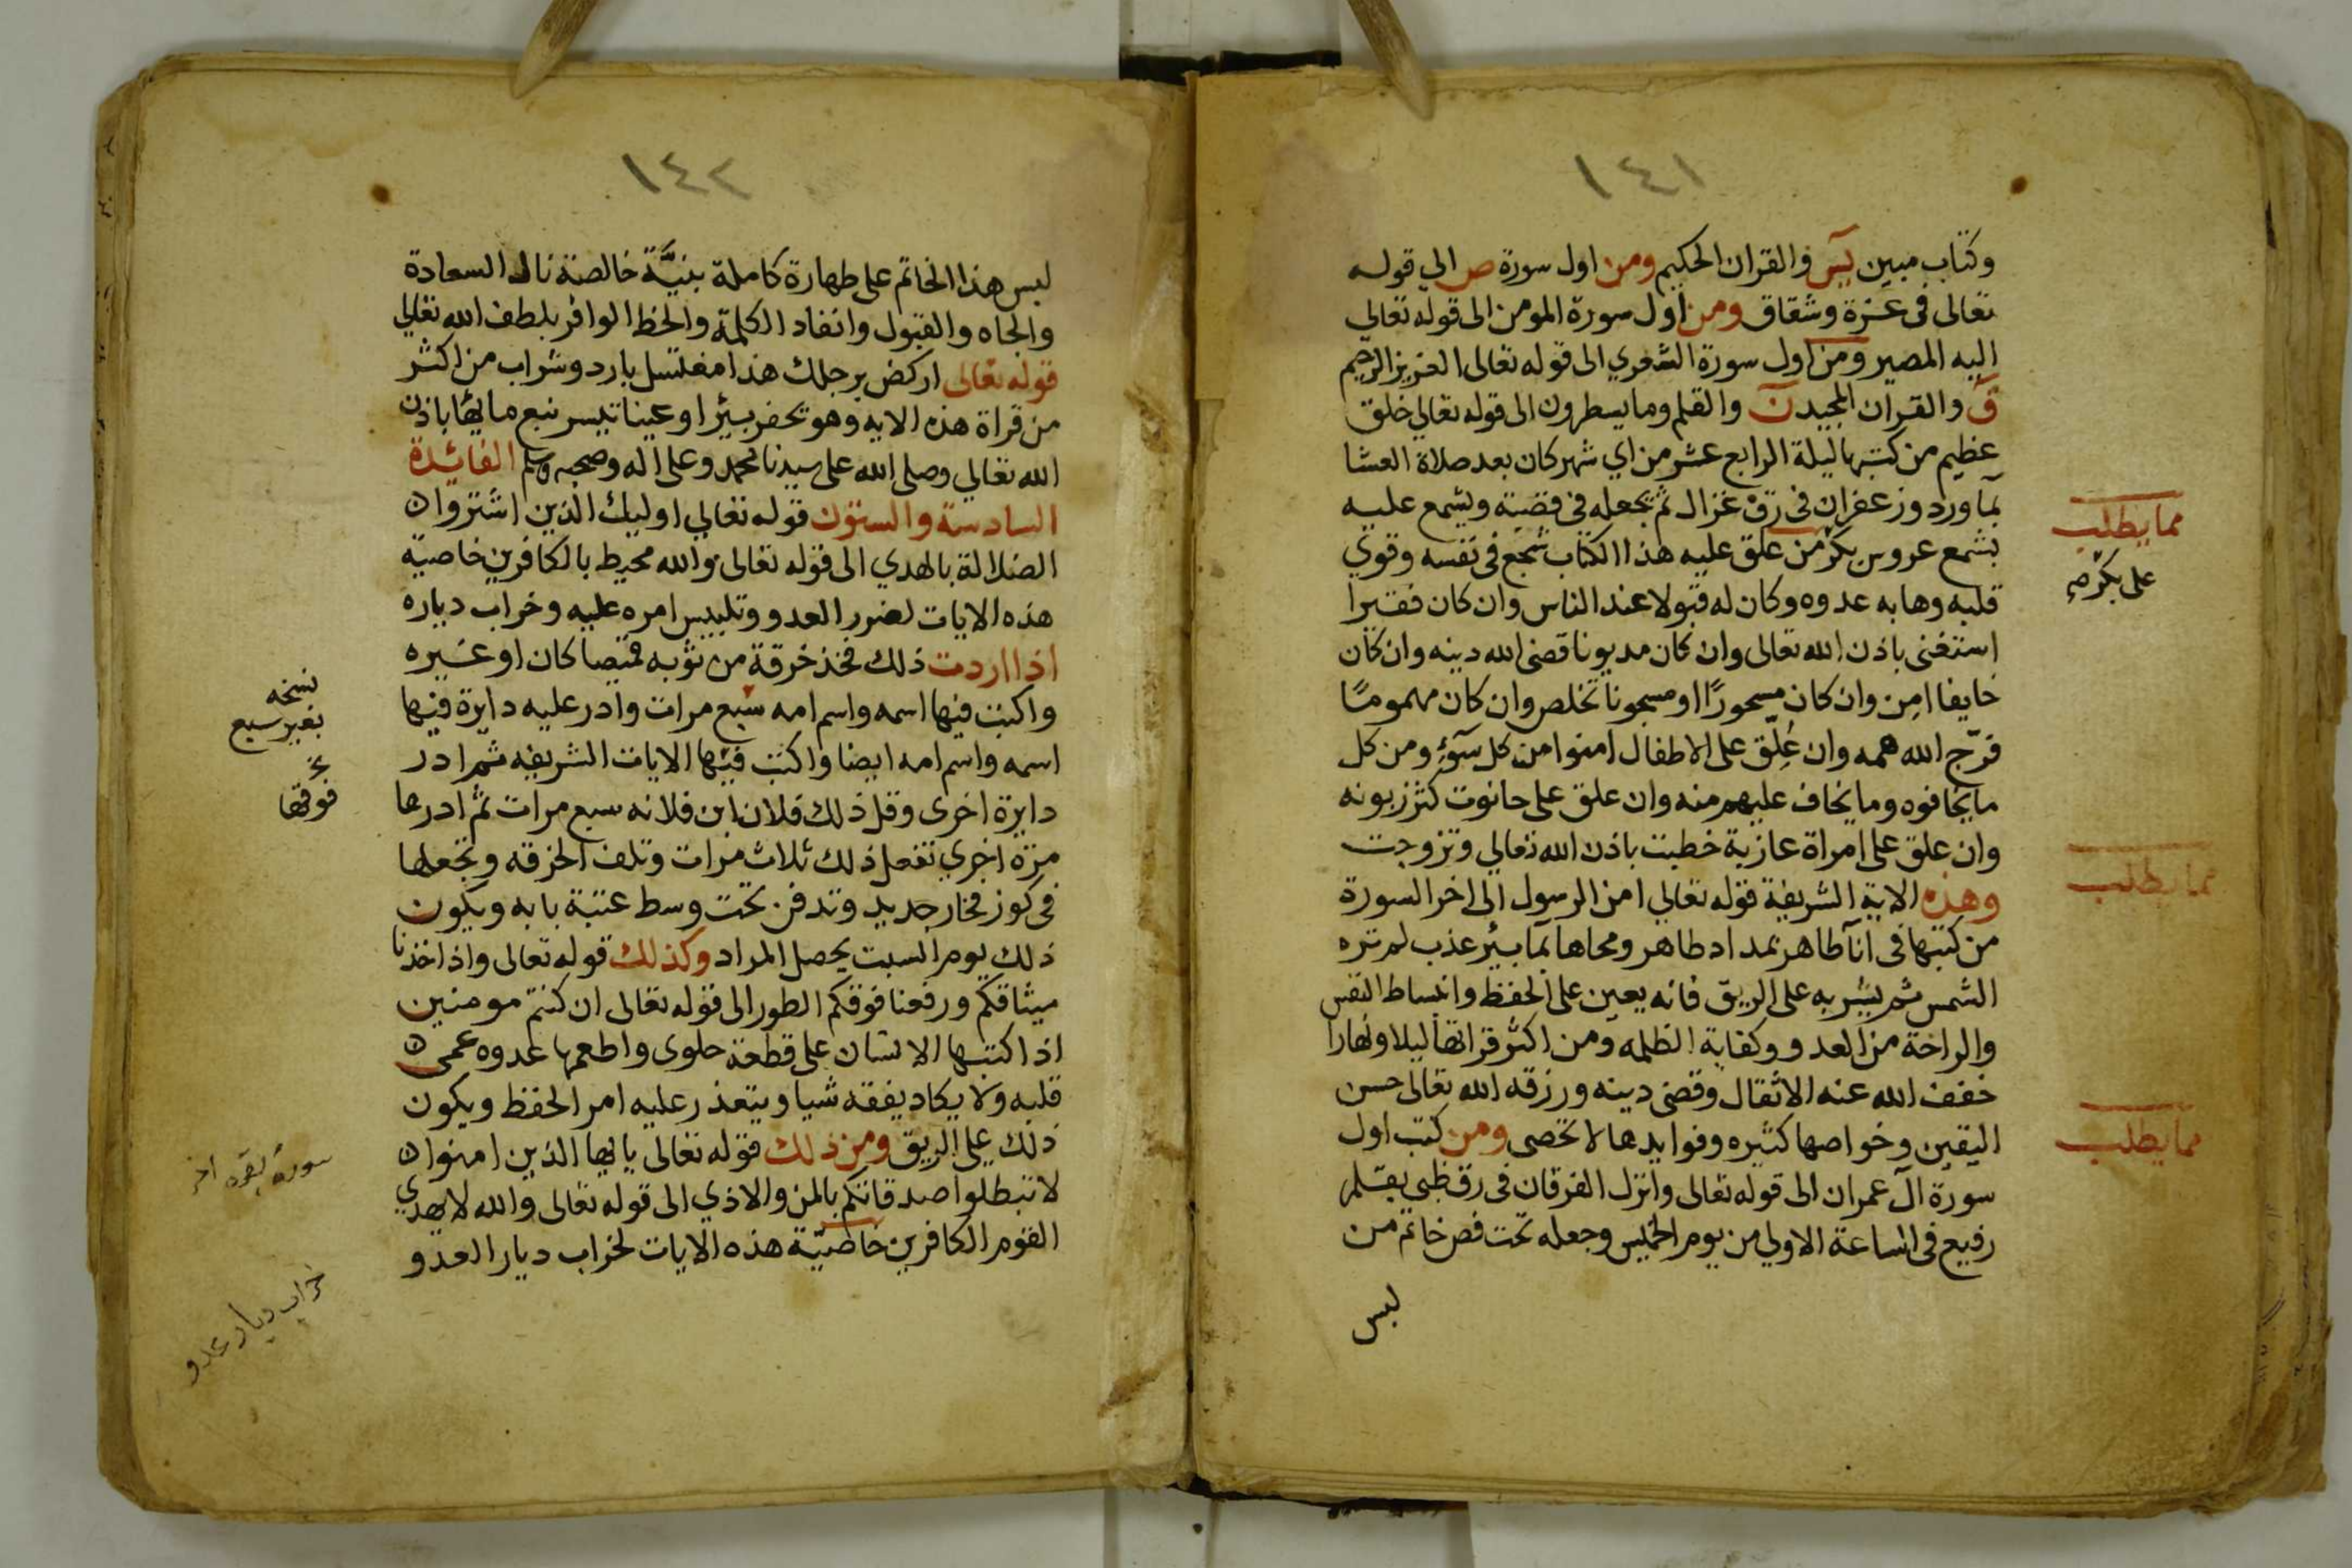 ١٤١
وكتاب مبين يس والقران الحكيم ومن اول سورة ص الي قوله
تعالى فى عزة وشقاق ومن اول سورة المومن الى قوله تعالي
اليه المصير ومن اول سورة الشعري الى قوله تعالى العزيز الرحيم
ق والقران المجيد ن والقلم وما يسطرون الى قوله تعالي خلق
عظيم من كتبها ليلة الرابع عشر من اي شهر كان بعد صلاة العشا
بماورد وزعفران فى رق غزال ثم تجعله فى قصبة ويشمع عليه
بشمع عروس بكر من علق عليه هذا الكتاب شجع فى نفسه وقوي
قلبه وهابه عدوه وكان له قبولا عند الناس وان كان فقيرا
استغنى باذن الله تعالى وان كان مديونا قضى الله دينه وان كان
خايفا امِن وان كان مسحورًا او مسجونا تخلص وان كان مهمومًا
فرّج الله همه وان عُلِّق على الاطفال امنوا من كل سوٓءٍ ومن كل
ما يخافوه وما يخاف عليهم منه وان علق على حانوت كثر زبونه
وان علق على امراة عازبة خطبت باذن الله تعالي وتزوجت
وهذه الاية الشريفة قوله تعالي امن الرسول الى اخر السورة
من كتبها فى انآ طاهر بمداد طاهر ومحاها بمآ بير عذب لم تره
الشمس ثم يشربه على الريق فانه يعين على الحفظ وانبساط النفس
والراحة من العدو وكفاية الظلمه ومن اكثر قراتها ليلا ونهارا
خفف الله عنه الاثقال وقضى دينه ورزقه الله تعالى حسن
اليقين وخواصها كثيره وفوايدها لا تحصى ومن كتب اول
سورة آل عمران الى قوله تعالى وانزل الفرقان فى رق ظبى بقلم
رفيع فى الساعة الاولي من يوم الخميس وجعله تحت فص خاتم من
لبس
مما يطلب
على بكرم
مما يطلب
مما يطلب
١٤٢
لبس هذا الخاتم على طهارة كاملة بنيَّة خالصة نال السعادة
والجاه والقبول وانفاد الكلمة والحظ الوافر بلطف الله تعالي
قوله تعالى اركض برجلك هذا مغتسل بارد وشراب من اكثر
من قراة هذه الايه وهو يحفر بيرا او عينا تيسر نبع مايها باذن
الله تعالي وصلى الله على سيدنا محمد وعلى اله وصحبه وسلم الفائدة
السادسة والستون قوله تعالي اوليك الذين اشتروا
الضلالة بالهدي الى قوله تعالى والله محيط بالكافرين خاصية
هذه الايات لضرر العدو وتلبيس امره عليه وخراب دياره
اذا اردت ذلك فخذ خرقة من ثوبه قميصا كان او غيره
واكتب فيها اسمه واسم امه سبع مرات وادر عليه دايرة فيها
اسمه واسم امه ايضا واكتب فيها الايات الشريفه ثم ادر
دايرة اخرى وقل ذلك فلان ابن فلانه سبع مرات ثم ادرها
مرة اخري تفعل ذلك ثلاث مرات وتلف الخرقه وتجعلها
فى كوز فخار جديد وتدفن تحت وسط عتبة بابه ويكون
ذلك يوم السبت يحصل المراد وكذلك قوله تعالى واذ اخذنا
ميثاقكم ورفعنا فوقكم الطور الى قوله تعالى ان كنتم مومنين
اذا كتبها الانسان على قطعة حلوى واطعمها عدوه عمى
قلبه ولا يكاد يفقه شيا ويتعذر عليه امر الحفظ ويكون
ذلك على الريق ومن ذلك قوله تعالى يا ايها الذين امنوا
لا تبطلوا صدقاتكم بالمن والاذي الى قوله تعالى والله لا يهدي
القوم الكافرين خاصيّة هذه الايات لخراب ديار العدو
نسخه
بغير سبع
فوقها
سورة بقره اخر
خراب ديار عدو